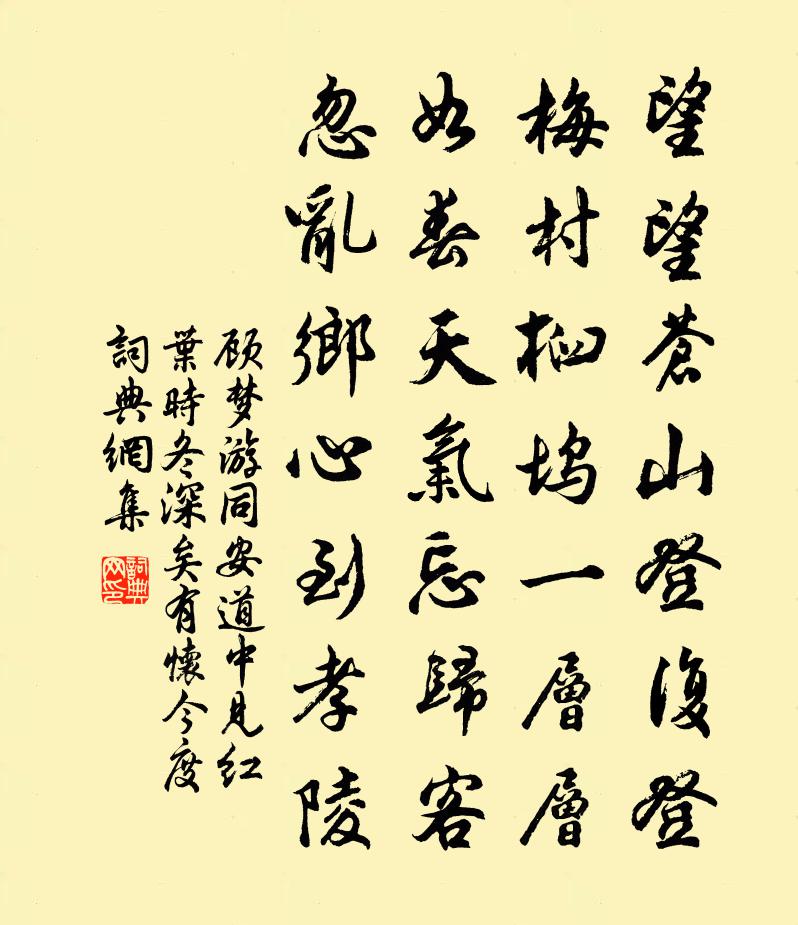 望望蒼山登復登
梅村桕塢一層層
如春天氣忘歸客
忽亂鄉心到孝陵
顾梦游同安道中见红
葉時冬深矣有懷今度
詞典網集
詞典
网印